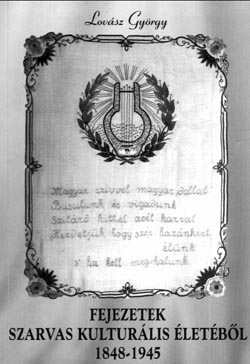 Lovász György
Magyar szivvel magyar dallal
Busulunk és vigadunk
Szilárd hittel acél karral
Hirdetjük hogy szép hazánkért
élünk
s' ha kell meg halunk.
FEJEZETEK
SZARVAS KULTURÁLIS ÉLETÉBŐL
1848-1945